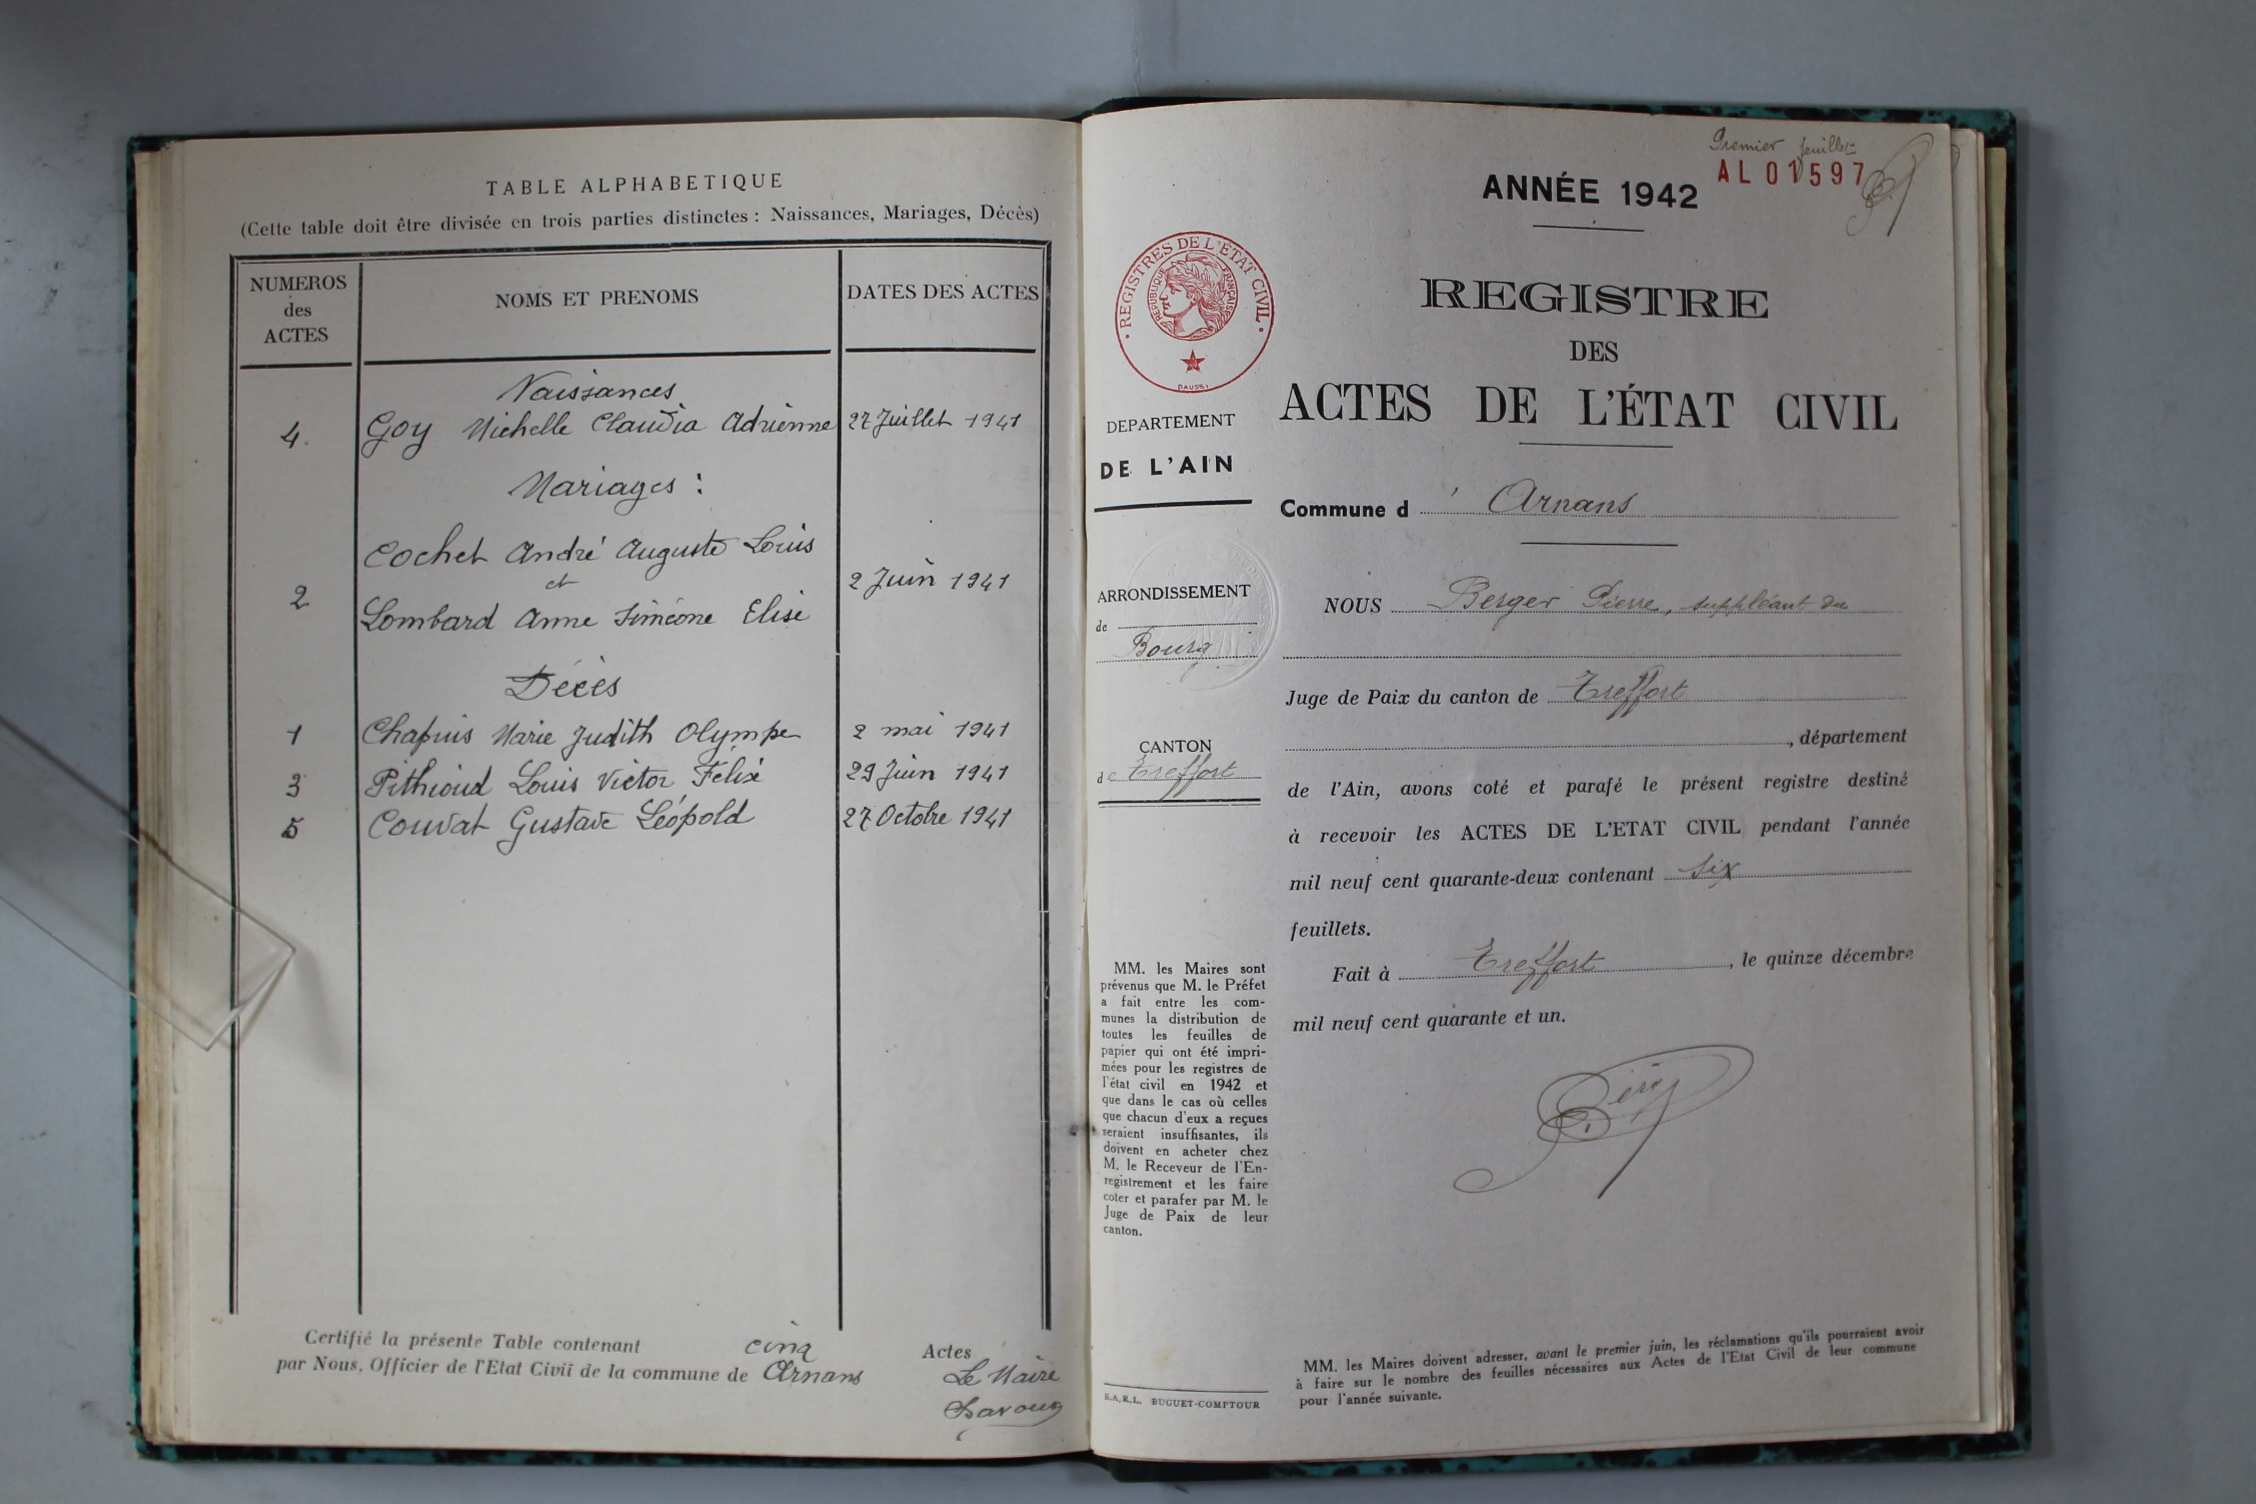 TABLE ALPHABETIQUE
(Cette table doit être divisée en trois parties distinctes : Naissances, Mariages, Décès)
NUMEROS
des
ACTES
NOMS ET PRENOMS
DATES DES ACTES
Naissances
4. Goy Michelle Claudia Adrienne 27 Juillet 1941
Mariages :
Cochet André Auguste Louis
et
2 2 Juin 1941
Lombard Anne Siméone Elise
Décès
1 Chapuis Marie Judith Olympe 2 mai 1941
3 Pithioud Louis Victor Félix 29 Juin 1941
5 Couvat Gustave Léopold 27 Octobre 1941
Certifié la présente Table contenant cinq Actes
par Nous, Officier de l'Etat Civil de la commune de Arnans
Le Maire
Premier feuillet
AL 01597
ANNÉE 1942
REGISTRES DE L'ÉTAT CIVIL
RÉPUBLIQUE FRANÇAISE
REGISTRE
DES
ACTES DE L'ÉTAT CIVIL
DEPARTEMENT
DE L'AIN
Commune d ' Arnans
ARRONDISSEMENT
de
Bourg
NOUS Berger Pierre, suppléant du
Juge de Paix du canton de Treffort
, département
CANTON
de Treffort
de l'Ain, avons coté et parafé le présent registre destiné
à recevoir les ACTES DE L'ETAT CIVIL pendant l'année
mil neuf cent quarante-deux contenant six
feuillets.
Fait à Treffort, le quinze décembre
mil neuf cent quarante et un.
MM. les Maires sont
prévenus que M. le Préfet
a fait entre les com-
munes la distribution de
toutes les feuilles de
papier qui ont été impri-
mées pour les registres de
l'état civil en 1942 et
que dans le cas où celles
que chacun d'eux a reçues
seraient insuffisantes, ils
doivent en acheter chez
M. le Receveur de l'En-
registrement et les faire
coter et parafer par M. le
Juge de Paix de leur
canton.
S.A.R.L. BUGUET-COMPTOUR
MM. les Maires doivent adresser, avant le premier juin, les réclamations qu'ils pourraient avoir
à faire sur le nombre des feuilles nécessaires aux Actes de l'Etat Civil de leur commune
pour l'année suivante.